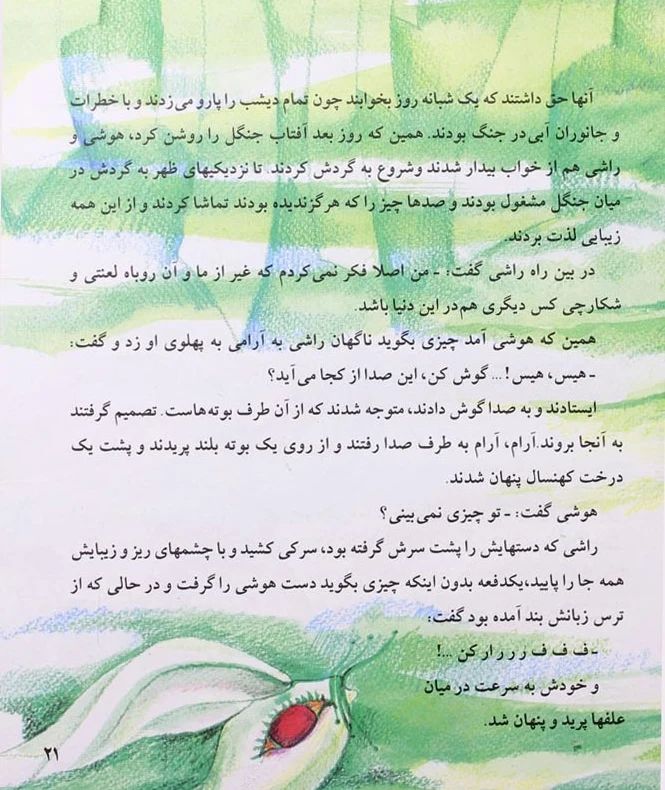 آنها حق داشتند که یک شبانه روز بخوابند چون تمام دیشب را پارو می‌زدند و با خطرات
و جانوران آبی در جنگ بودند. همین که روز بعد آفتاب جنگل را روشن کرد، هوشی و
راشی هم از خواب بیدار شدند وشروع به گردش کردند. تا نزدیکیهای ظهر به گردش در
میان جنگل مشغول بودند و صدها چیز را که هرگزندیده بودند تماشا کردند و از این همه
زیبایی لذت بردند.
در بین راه راشی گفت: ـ من اصلا فکر نمی‌کردم که غیر از ما و آن روباه لعنتی و
شکارچی کس دیگری هم در این دنیا باشد.
همین که هوشی آمد چیزی بگوید ناگهان راشی به آرامی به پهلوی او زد و گفت:
ـ هیس، هیس!... گوش کن، این صدا از کجا می‌آید؟
ایستادند و به صدا گوش دادند، متوجه شدند که از آن طرف بوته‌هاست. تصمیم گرفتند
به آنجا بروند.آرام، آرام به طرف صدا رفتند و از روی یک بوته بلند پریدند و پشت یک
درخت کهنسال پنهان شدند.
هوشی گفت: ـ تو چیزی نمی‌بینی؟
راشی که دستهایش را پشت سرش گرفته بود، سرکی کشید و با چشمهای ریز و زیبایش
همه جا را پایید،یکدفعه بدون اینکه چیزی بگوید دست هوشی را گرفت و در حالی که از
ترس زبانش بند آمده بود گفت:
ـ ف ف ف ر ر ر ار کن ...!
و خودش به سرعت در میان
علفها پرید و پنهان شد.
۲۱